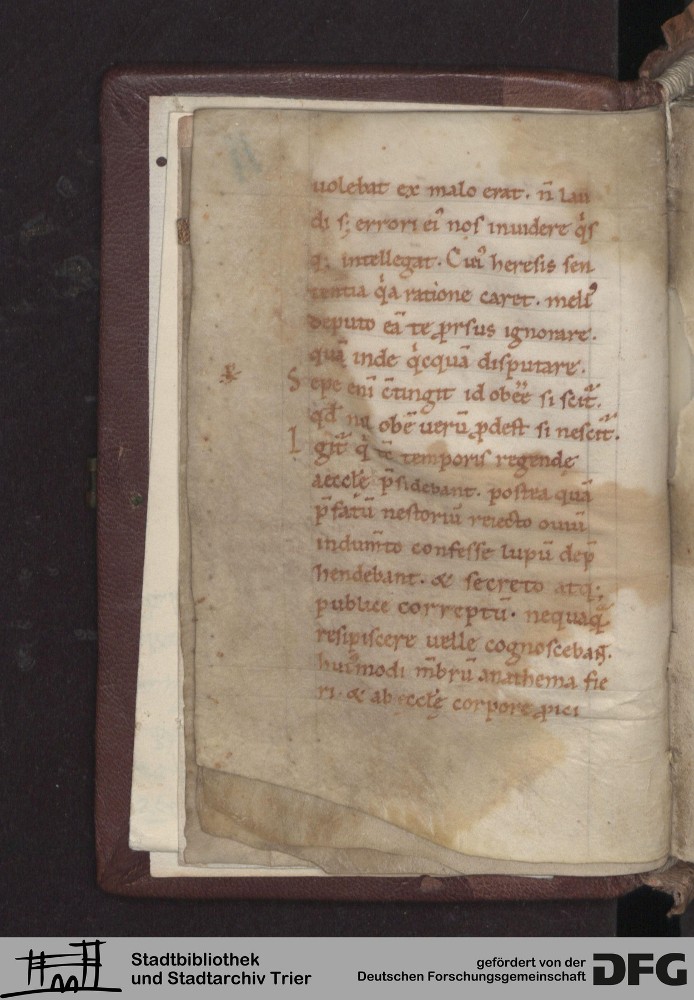 uolebat ex malo erat. n̄ lau
di s; errori ei᷒ nos inuidere q̇s
q; intellegat. Cui᷒ heresis sen
tentia q̇a ratione caret. meli᷒
deputo eā te ꝓrsus ignorare.
quā inde q̇cquā disputare.
Sepe eni c̄tingit id obēē si scit᷑.
qd̄ obēē uerū ꝓdest si nescit᷑.
Igit᷑ q̇ tc̄ temporis regende
aeccłę p̄sidebant. postea quā
p̄fatū nestoriū reiecto ouiū
indum̄to confesse lupū dep̄
hendebant. & secreto atq;
publice correptū. nequaq̄
resipiscere uelle cognoscebaꞃ.
hui᷒modi m̄brū anathema fie
ri. & ab eccłę corpore ꝓici
Stadtbibliothek
und Stadtarchiv Trier
gefördert von der
Deutschen Forschungsgemeinschaft
DFG